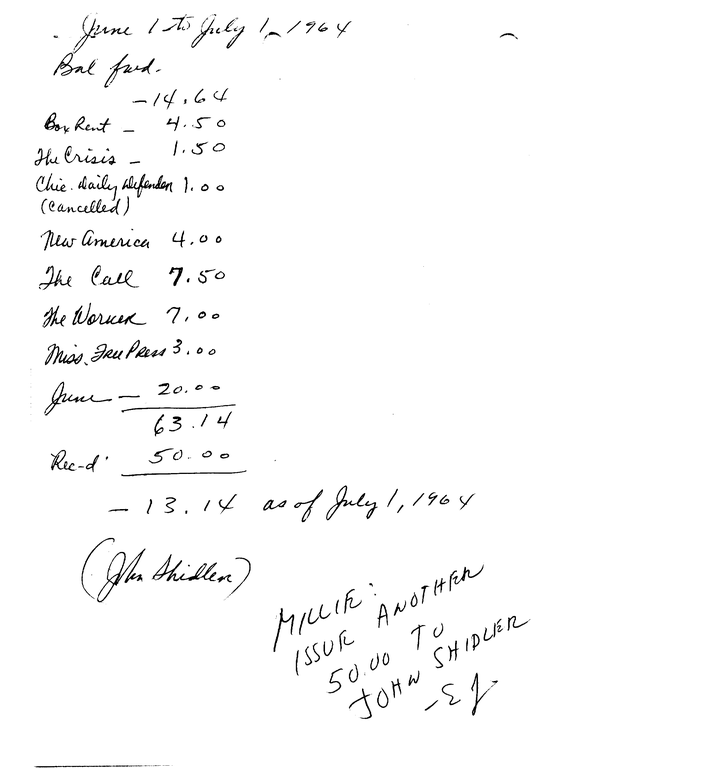 June 1 to July 1, 1964
Bal fwd.
-14.64
Box Rent - 4.50
The Crisis - 1.50
Chic. Daily Defender 1.00
(Cancelled)
New America 4.00
The Call 7.50
The Worker 7.00
Miss. Free Press 3.00
June - 20.00
63.14
Rec-d' 50.00
- 13.14 as of July 1, 1964
(John Shidler)
MILLIE:
ISSUE ANOTHER
50.00 TO
JOHN SHIDLER
-EJ